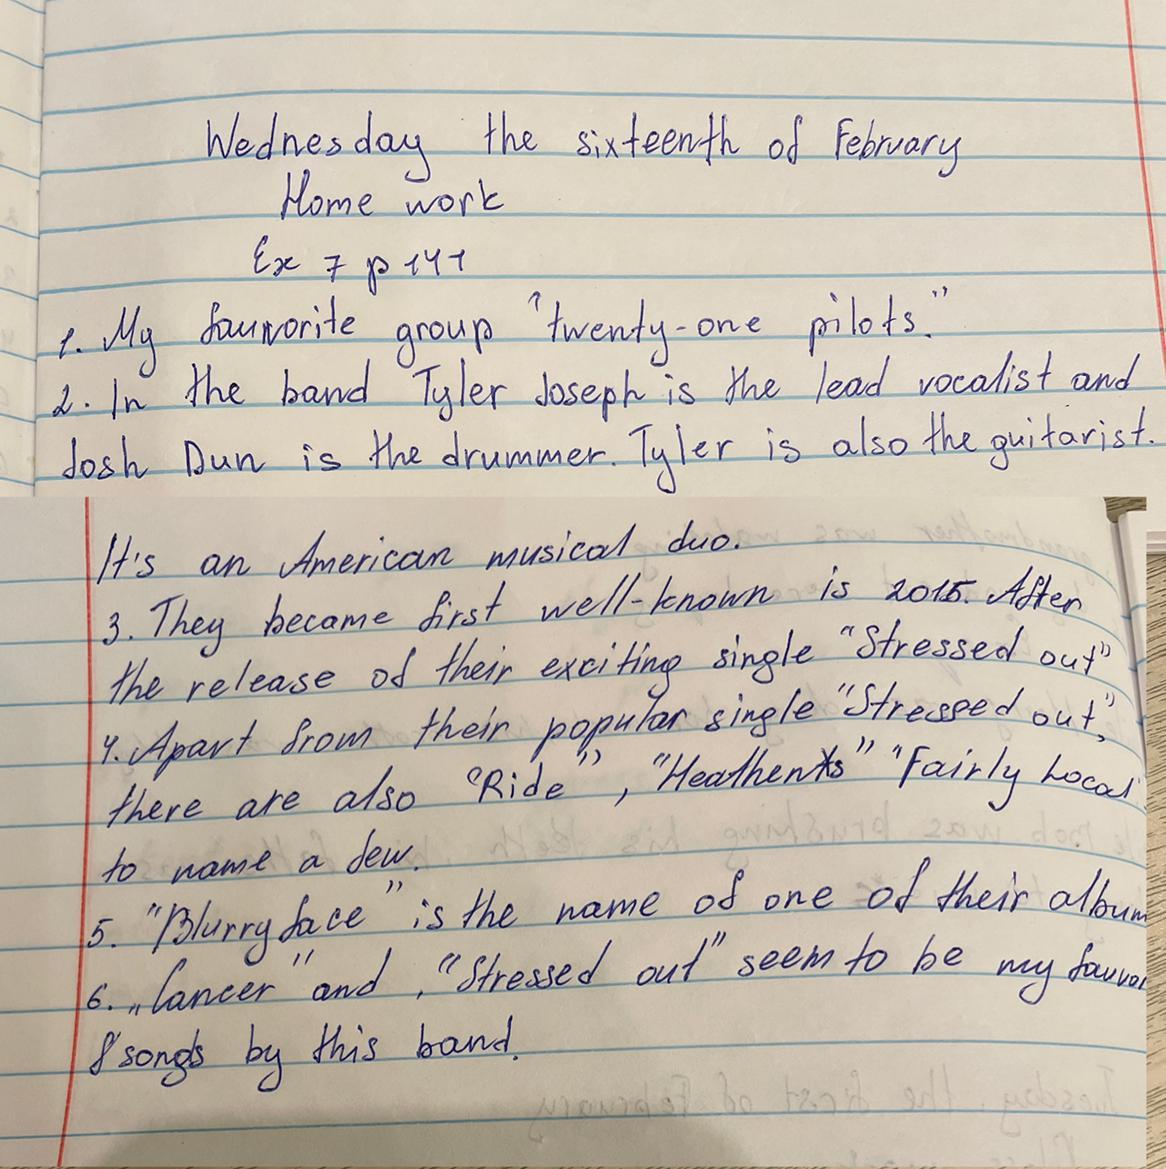 Wednesday the sixteenth of February
Home work
Ex 7 p 141
1. My fauvorite group "twenty-one pilots."
2. In the band Tyler Joseph is the lead vocalist and
Josh Dun is the drummer. Tyler is also the guitarist.
It's an American musical duo.
3. They became first well-known is 2015. After
the release of their exciting single "Stressed out"
4. Apart from their popular single "Stressed out",
there are also "Ride", "Heathents" "Fairly Local
to name a few.
5. "Blurryface" is the name of one of their album
6. „Cancer" and, "Stressed out" seem to be my fauvor
songs by this band.